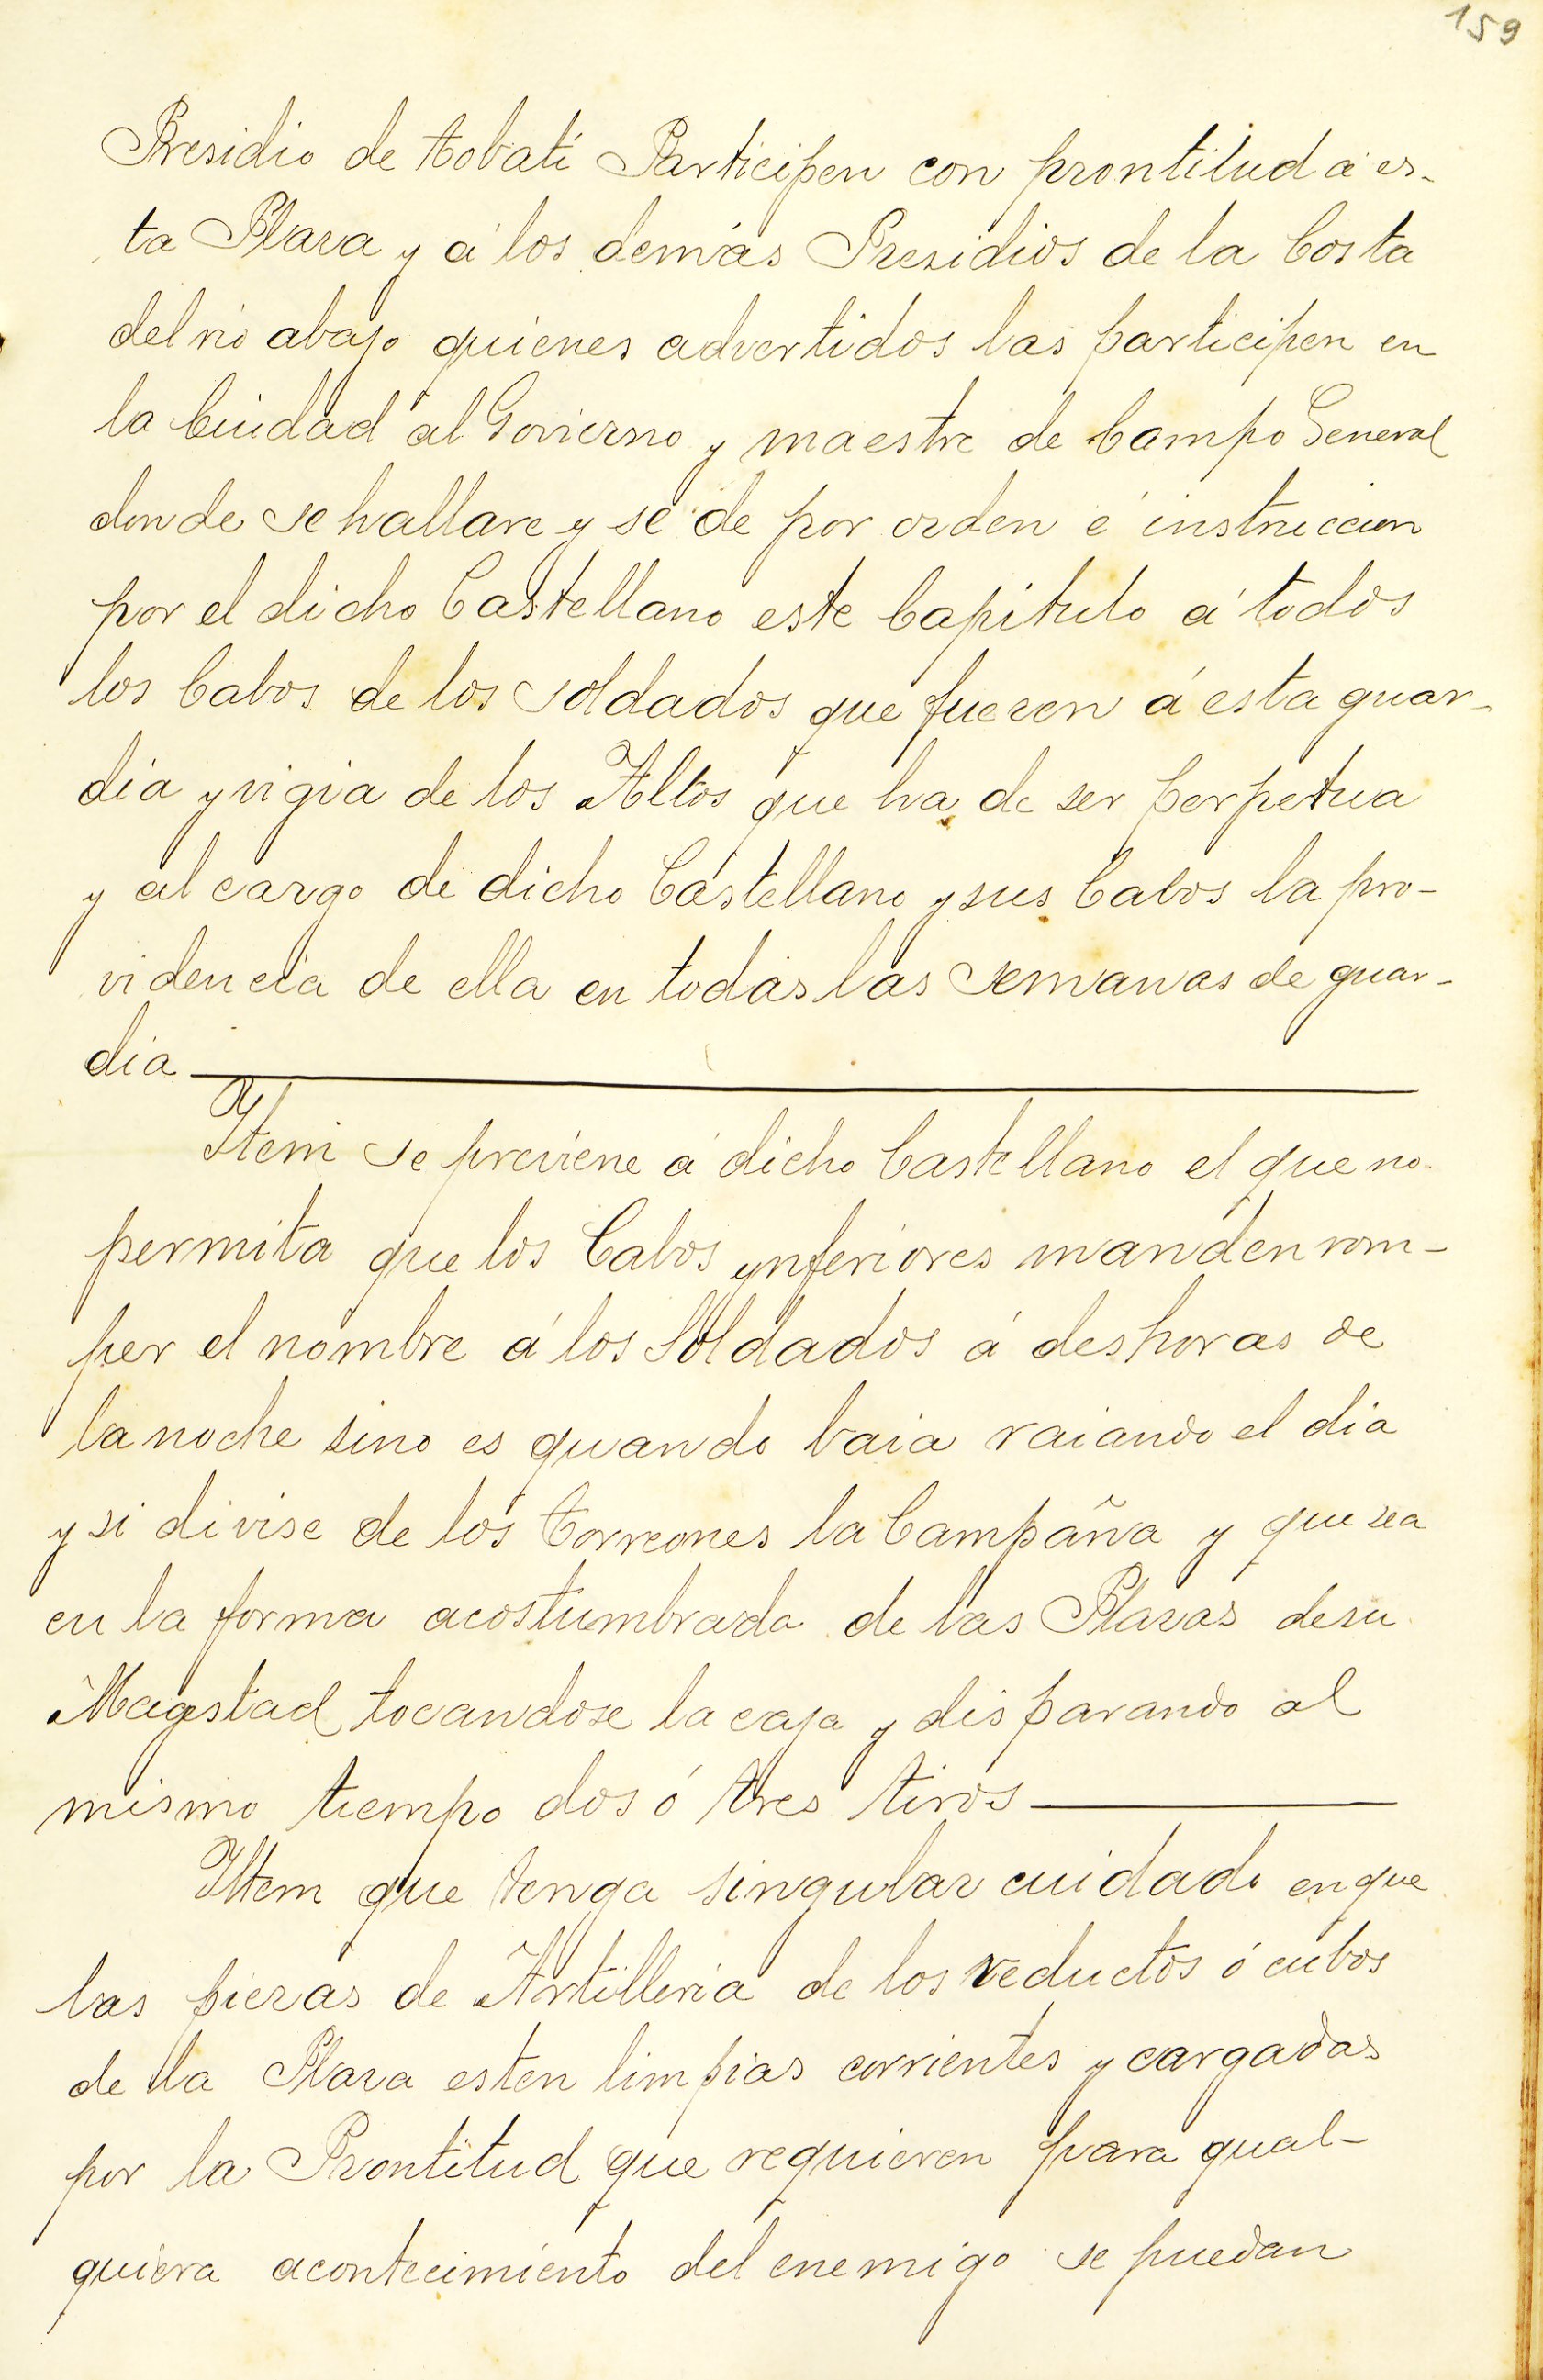 159
Presidio de tobatí Participen con prontitud á es-
ta Plaza y á los demás Presidios de la Costa
del rio abajo quienes advertidos las participen en
la Ciudad al Govierno y maestre de Campo General
donde se hallare y se dé por orden é instruccion
por el dicho Castellano este Capitulo á todos
los Cabos de los soldados que fueren á esta guar-
dia y vigia de los Altos que ha de ser perpetua
y al cargo de dicho Castellano y sus Cabos la pro-
videncia de ella en todas las semanas de guar-
dia
Item se previene á dicho Castellano el que no
permita que los Cabos ynferiores manden rom-
per el nombre á los Soldados á deshoras de
la noche sino es quando vaia raiando el dia
y si divise de los torreones la Campaña y que sea
en la forma acostumbrada de las Plazas de su
Magestad tocandose la caja y disparando al
mismo tiempo dos ó tres tiros
Ittem que tenga singular cuidado en que
las piezas de Artilleria de los reductos ó cubos
de la Plaza esten limpias corrientes y cargadas
por la Prontitud que requieren para qual-
quiera acontecimiento del enemigo se puedan